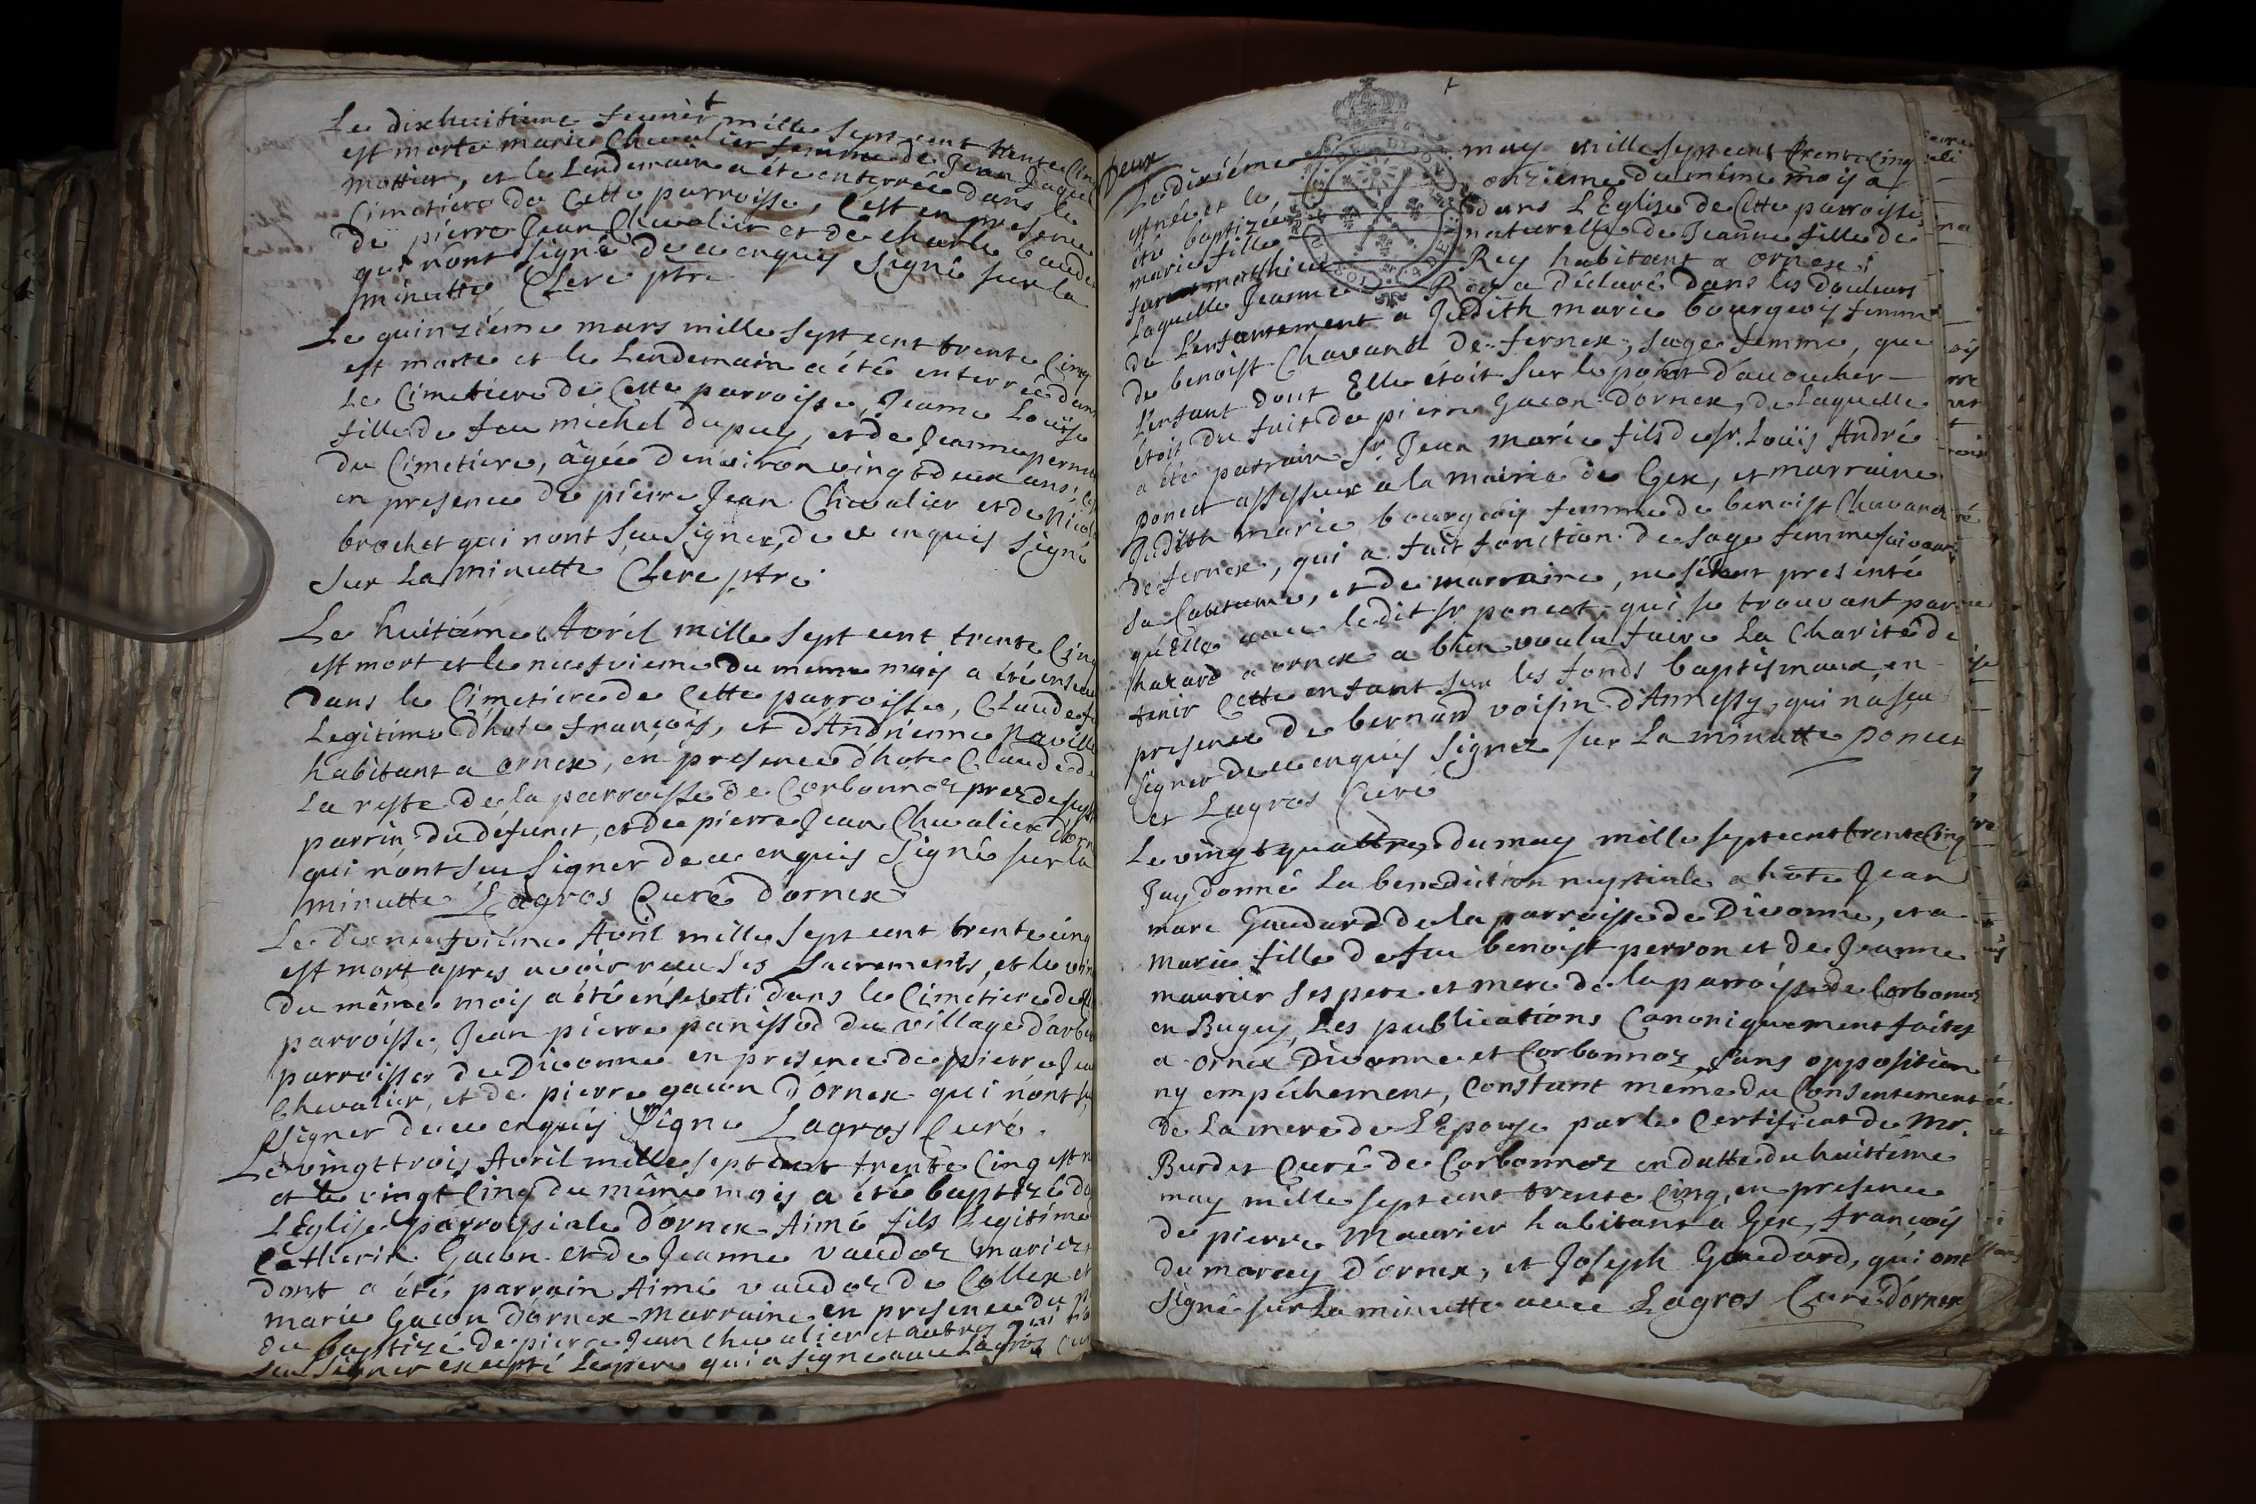 Le dixhuitieme fevrier mille sept cent trente Cinq
est morte marie Chevalier femme de Jean Jaque
mottier, et le Lendemain a été enterrée dans le
Cimetiere de Cette parroisse, C'est en presence
de pierre Jean Chevalier et de charle
qui n'ont signé de ce enquis Signé sur la
minutte Clerc ptre
Le quinziéme mars mille sept cent trente Cinq
est morte et le Lendemain a été enterrée dans
Le Cimetiere de Cette parroisse, Jeanne Louise
fille de feu michel dupuy, et de Jeanne
du Cimetiere, âgée d'environ vingt deux ans,
en presence de pierre Jean Chevalier et de
brochet qui n'ont sçu signer, de ce enquis signé
sur La minutte Clerc ptre
Le huitiéme Avril mille sept cent trente Cinq
est mort et le neufvieme du meme mois a été
Dans le Cimetiere de Cette parroisse, Claude
Legitime d'hôte françois, et d'Andrienne naville
habitant a ornex, en presence d'hôte Claude
La reste de la parroisse de Corbonnoz prez de
parrin du défunct, et de pierre Jean Chevalier d'orn
qui n'ont sçu signer de ce enquis Signé sur la
minutte Lagros Curé d'ornex
Le dixneufviéme Avril mille sept cent trente cinq
est mort apres avoir receu ses Sacrements, et le
du même mois a été enseveli dans le Cimetiere de
parroisse, Jean pierre panissod du village d'arb
parroisse de Divonne en presence de pierre Jean
Chevalier, et de pierre gacon d'ornex qui n'ont
signer de ce enquis Signé Lagros Curé.
Le vingttrois Avril mille sept cent trente Cinq est n
et le vingt Cinq du même mois a été baptizé d
L'Eglise parroysiale d'ornex Aimé fils Legitime
Catherin Gacon et de Jeanne vaudoz mariez
dont a été parrain Aimé vaudoz de Collex et
marie Gacon d'ornex marraine en presence du
du baptizé de pierre Jean chevalier et autres qui n'o
sçu signer excepté Le pere qui a signé avec Lagros Cur
deux
Le dixiéme may mille sept cent trente Cinq
est née et le onzieme du même moys a
été baptizée dans L'Eglise de Cette parroisse
marie fille naturelle de Jeanne fille de
Rey habitant a ornex;
Laquelle Jeanne Rey a déclaré dans les douleurs
de L'enfantement a Judith marie bourgeois femme
de benoist Chavand de fernex, sage femme, que
L'enfant dont Elle étoit sur le point d'accoucher
étoit du fait de pierre Gacon d'ornex, de Laquelle
a été parrain Sr. Jean marie fils de Sr. Loüis André
poncet assesseur a la mairie de Gex, et marraine
Judith marie bourgeois femme de benoist Chavand
de fernex, qui a fait fonction de sage femme suivant
sa Coutume, et de marraine, ne s'étant presenté
qu'Elle avec le dit sr poncet qui se trouvant par
hazard a ornex a bien voulu faire La Charité de
tenir Cette enfant sur les fonds baptismaux, en
presence de bernard voisin d'Annessy, qui n'a sçu
Signer de ce enquis Signez sur La minutte poncet
et Lagros Curé
Le vingt quattre du may mille sept cent trente Cinq
J'ay donné La benediction nuptiale a hote Jean
marc Gaudard de la parroisse de Divonne, et a
marie fille de feu benoist perron et de Jeanne
maurier ses pere et mere de la parroisse de Corbonnoz
en Bugey, Les publications Canoniquement faites
a ornex Divonne et Corbonnoz, sans opposition
ny empéchement, Constant meme du Consentement
de La mere de L'Epouse par le Certificat de Mr.
Burdet Curé de Corbonnoz en datte du huitiéme
may mille sept cent trente Cinq, en presence
de pierre Maurier habitant a Gex, françois
dumaray d'ornex, et Joseph Gaudard, qui ont
Signé sur La minutte avec Lagros Curé d'ornex